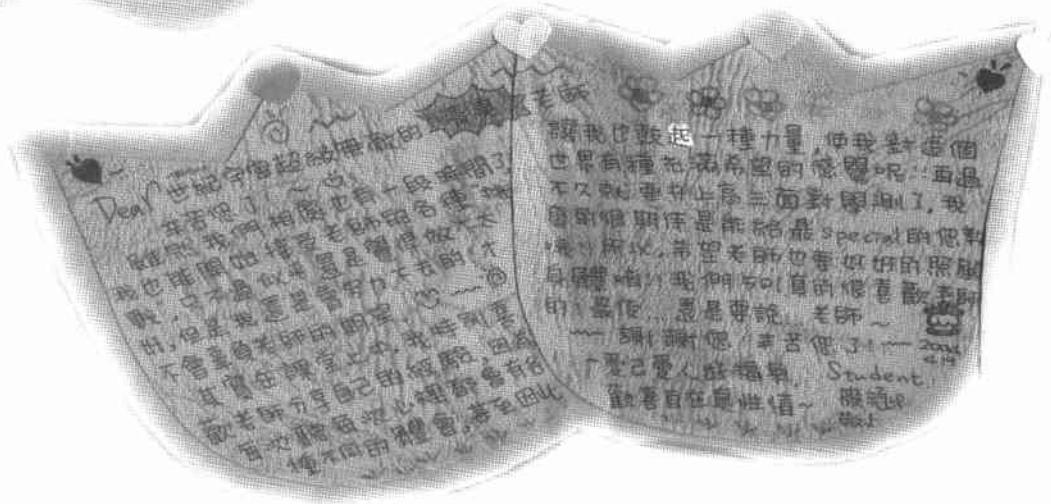 Dear 世界守護超級無敵的
老師
辛苦您了!~
雖然我們相處也有一段時間了
我也能開始接受老師的各種"挑
戰",只不過似乎還是覺得做不太
好,但是我還是會努力下去的!才
不會辜負老師的期望,~~
其實在課堂上中,我特別喜
歡老師分享自己的經驗,因為
每次聽每次心裡都會有各
種不同的體會,甚至因此
讓我也鼓起一種力量,使我對這個
世界有種充滿希望的感覺呢!!再過
不久就要升上高三面對學測了,我
真的很期待是能給最special的您教
所以,希望老師也要好好的照顧
身體哦!!我們501真的很喜歡老師
的!最後...還是要說...老師~
~~謝謝您!辛苦您了!~~
2006
4.19
「愛己愛人好福氣, Student:
歡喜自在真性情~
敬上